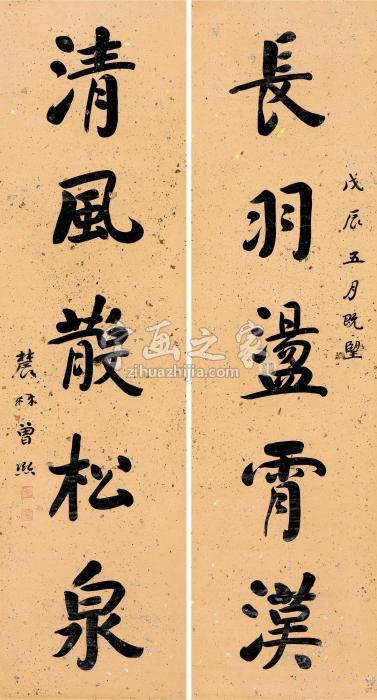 長羽盪霄漢
戊辰五月既望
清風散松泉
農髯曾熙
字画之家
zihuazhijia.com